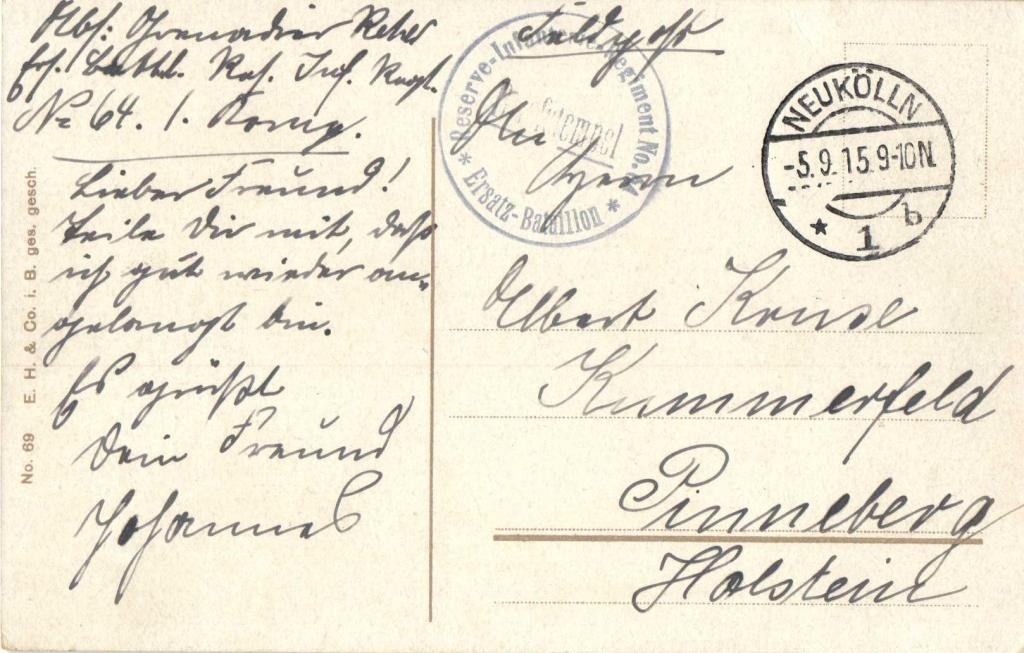 Abs: Grenadier Rehr
Ers. Battl. Res. Inf. Regt.
No 64. 1. Komp.
Lieber Freund!
Teile Dir mit, daß
ich gut wieder an-
gelangt bin.
Es grüßt
Dein Freund
Johannes
No. 69 E. H. & Co. i. B. ges. gesch.
Feldpost
Reserve-Infanterie-Regiment No. 64
Briefstempel
* Ersatz-Bataillon *
An
Herrn
NEUKÖLLN
-5.9.15.9-10N.
* 1 b
Albert Kruse
Kummerfeld
Pinneberg
Holstein